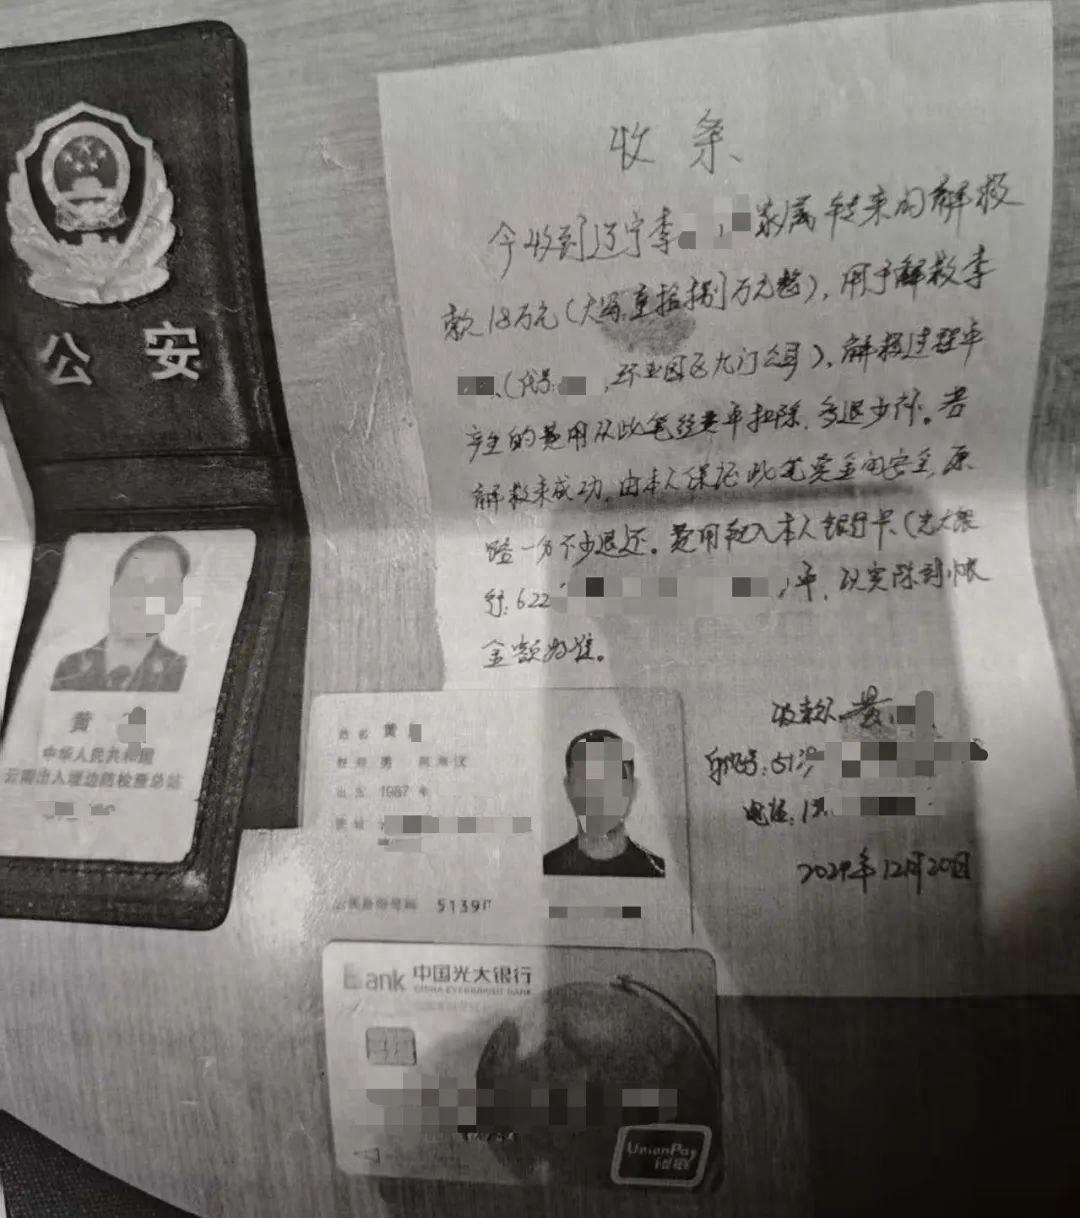 公安
黄
中华人民共和国
云南出入境边防检查总站
收条
今收到辽宁李 家属转来的解救
款18万元(大写:壹拾捌万元整),用于解救李
(代号: ,环亚园区九门公司),解救过程中
产生的费用从此笔经费中扣除,多退少补。若
解救未成功,由本人保证此笔资金的安全,原
路一分不少退还。费用转入本人银行卡(光大银
行:622 )中,以实际到帐
金额为准。
收款人:黄
身份证号:513
电话:1
2024年12月20日
姓名 黄
性别 男 民族汉
出生 1987 年
住址
公民身份号码 5139
Bank 中国光大银行
CHINA EVERBRIGHT BANK
UnionPay
银联